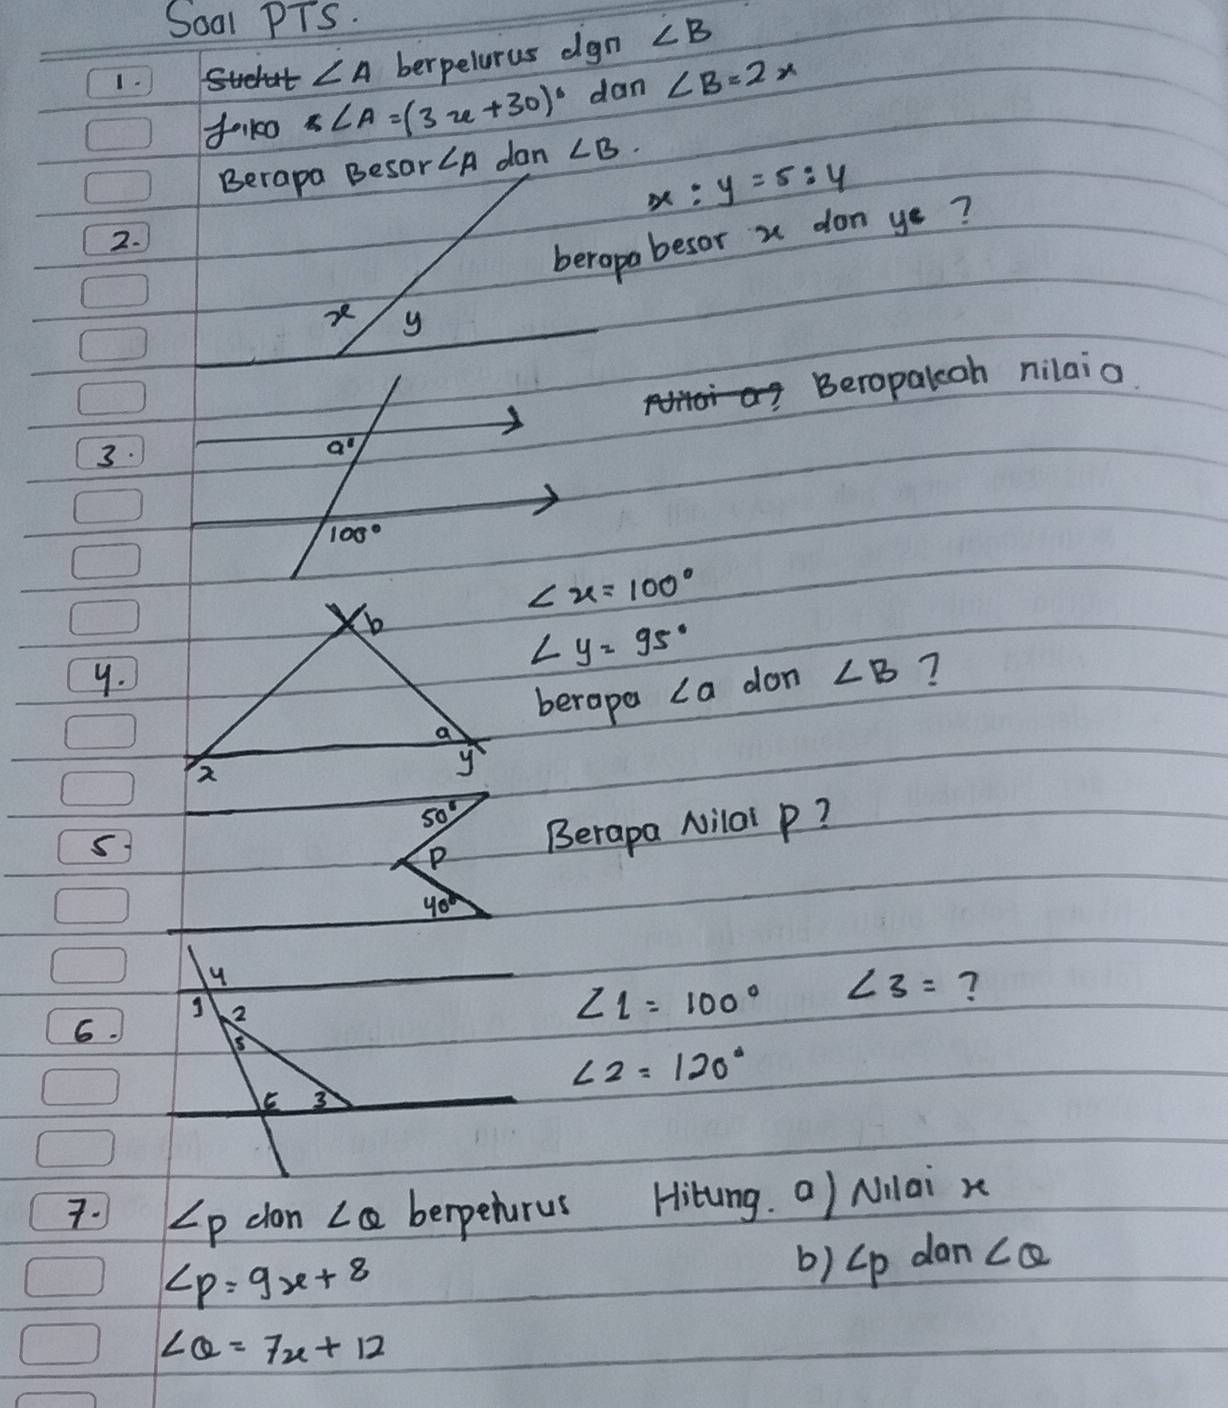 Soal PTS.
1. Sudut ∠A berpelurus dgn ∠B
Jika ∠A = (3x+30)° dan ∠B = 2x
Berapa Besar ∠A dan ∠B.
x : y = 5 : 4
2. berapa besar x dan y ?
x y
Nilai a? Berapakah nilai a.
3. a°
100°
∠x = 100°
b
∠y = 95°
4. berapa ∠a dan ∠B ?
a
x y
50°
5. P Berapa Nilai P ?
40°
4
1 2 ∠1 = 100° ∠3 = ?
6. 5
∠2 = 120°
6 3
7. ∠p dan ∠Q berpelurus Hitung. a) Nilai x
∠p = 9x + 8 b) ∠p dan ∠Q
∠Q = 7x + 12